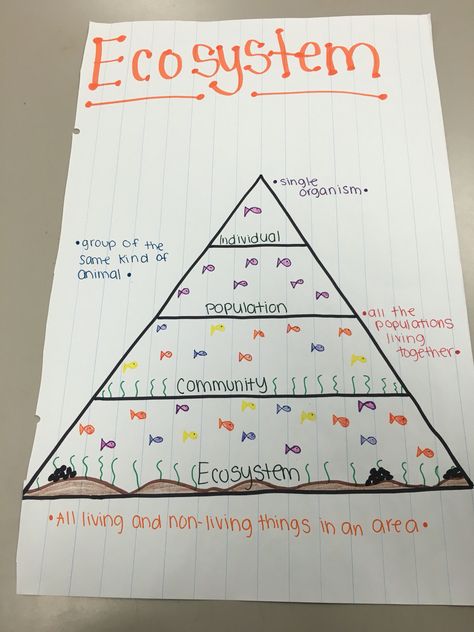 Ecosystem
•single
organism•
Individual
•group of the
same kind of
animal•
Population
•all the
populations
living
together•
Community
Ecosystem
•All living and non-living things in an area•